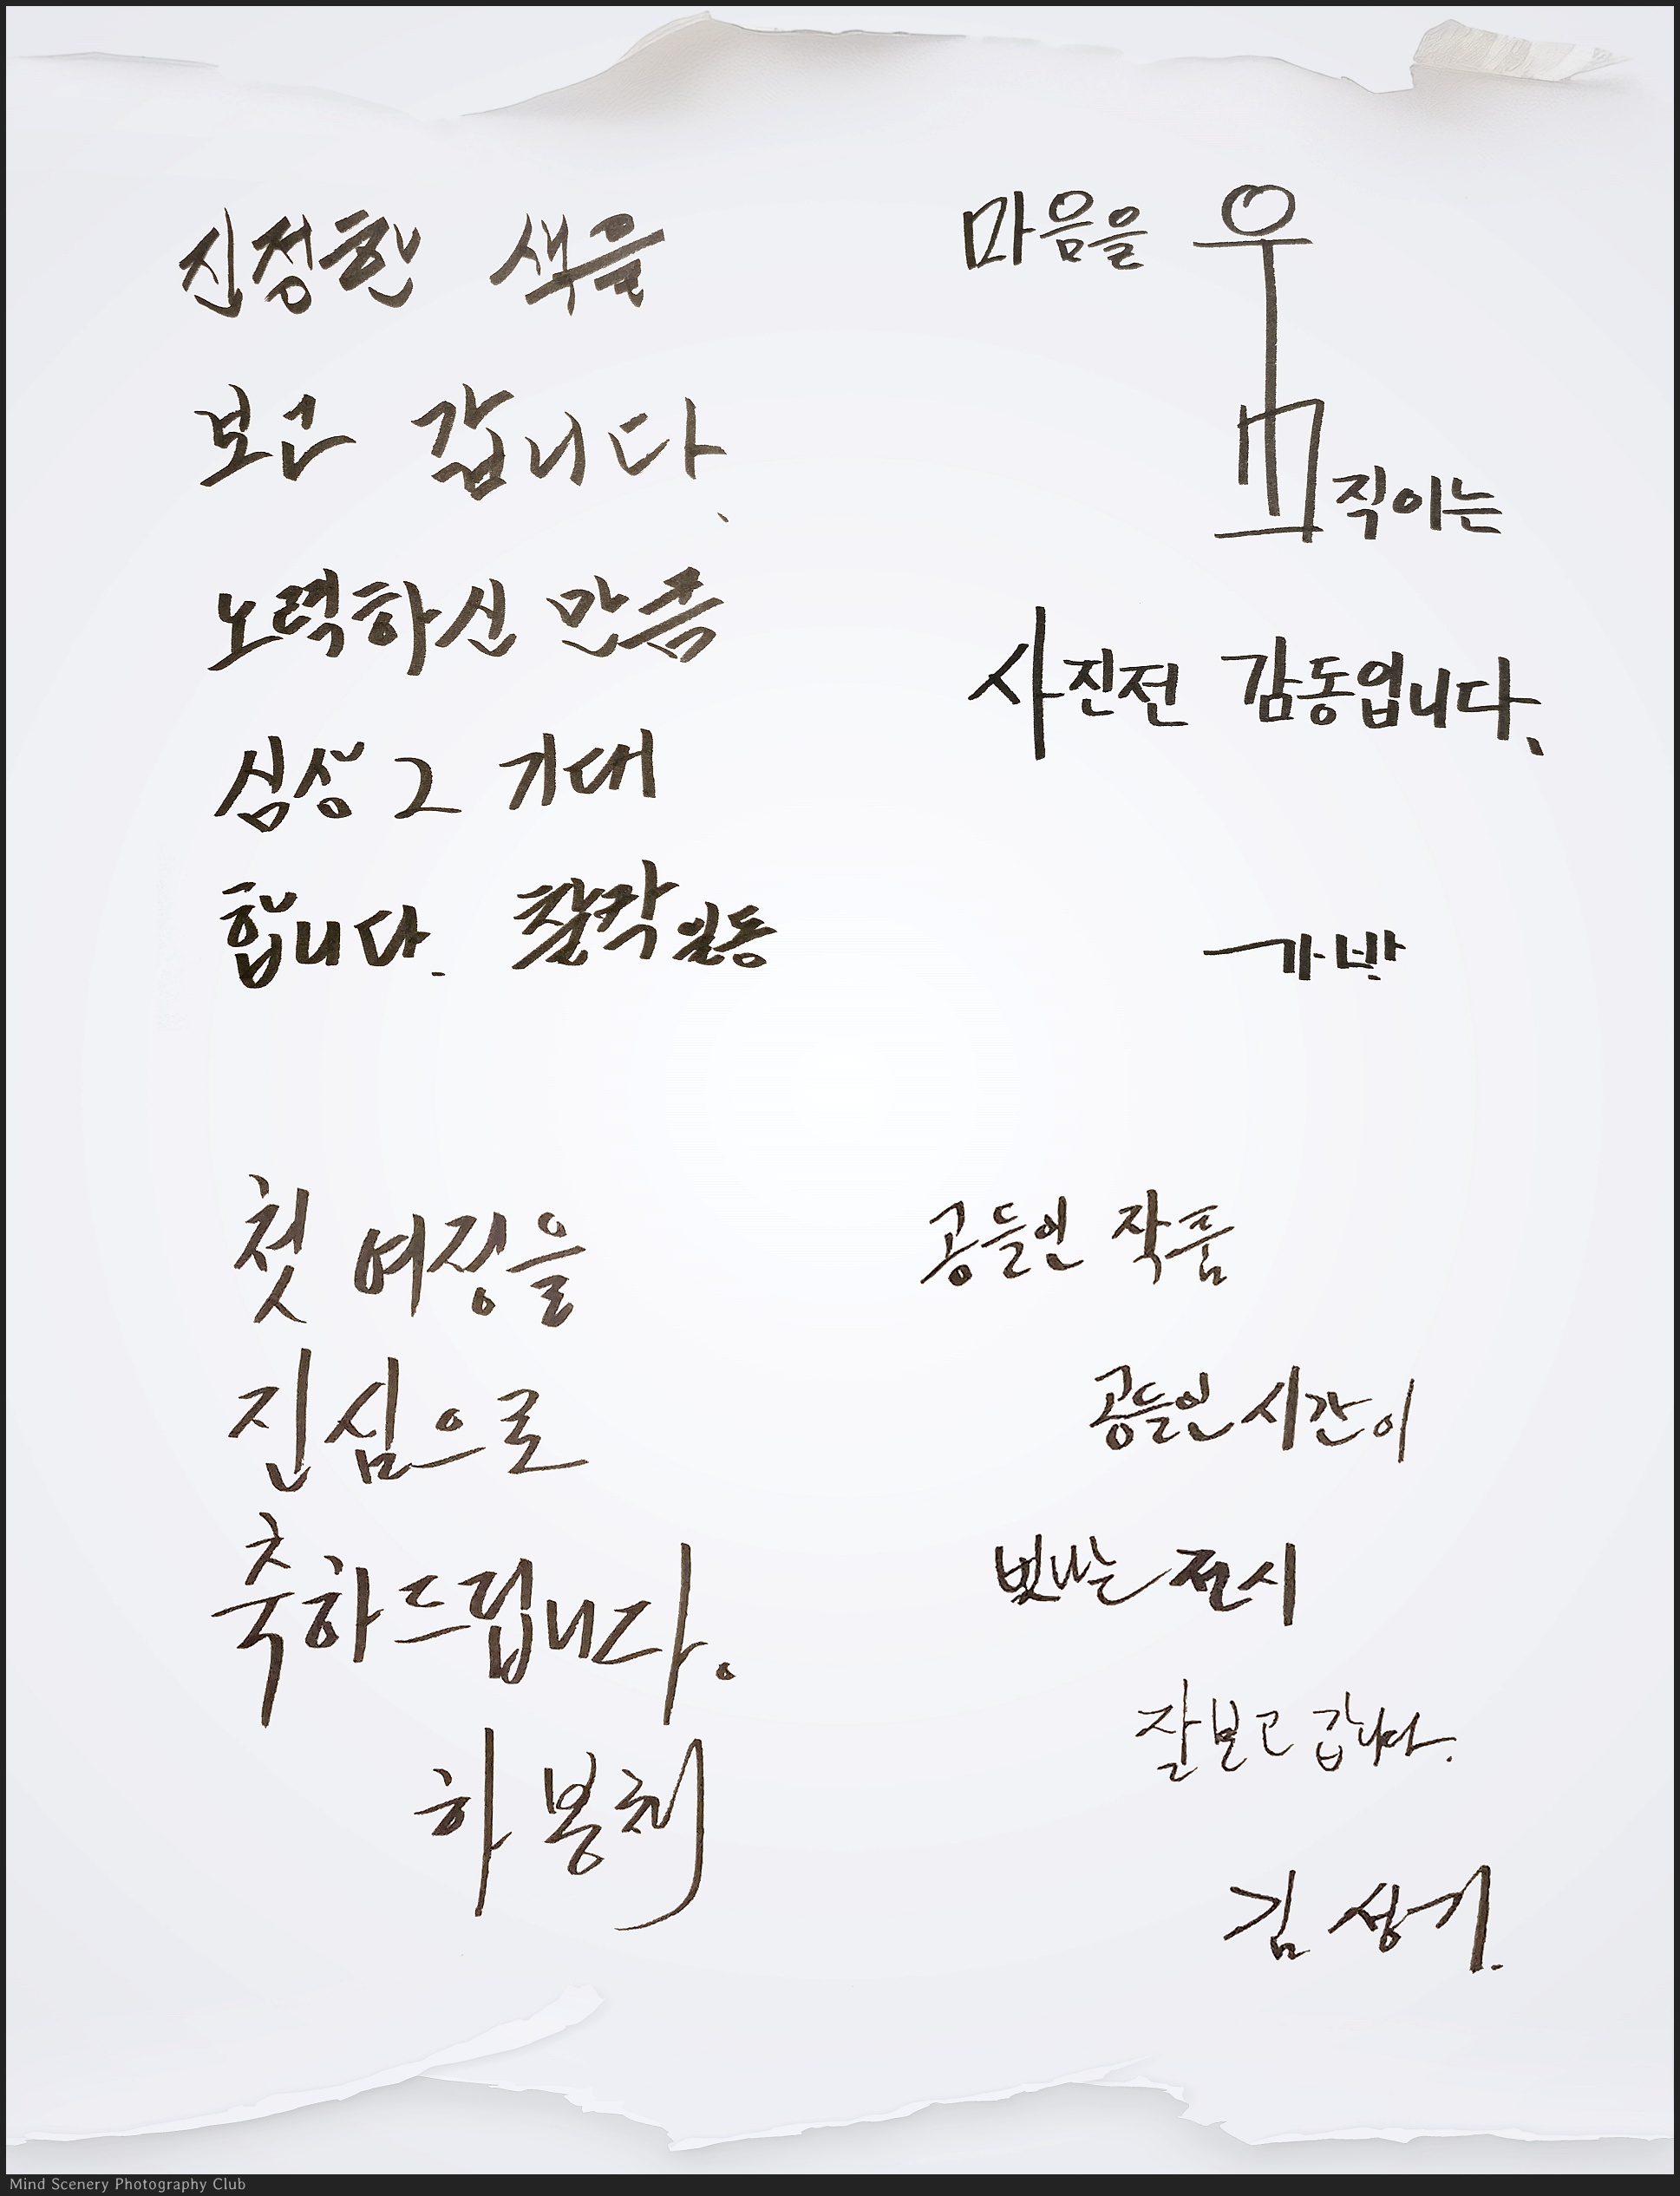 진정한 색을
보고 갑니다.
노력하신 만큼
심상 그 기대
합니다. 찰칵일동
마음을 움직이는
사진전 감동입니다.
가반
첫 여정을
진심으로
축하드립니다.
하봉채
공들인 작품
공들인 시간이
빛나는 전시
잘보고 갑니다.
김상기.
Mind Scenery Photography Club